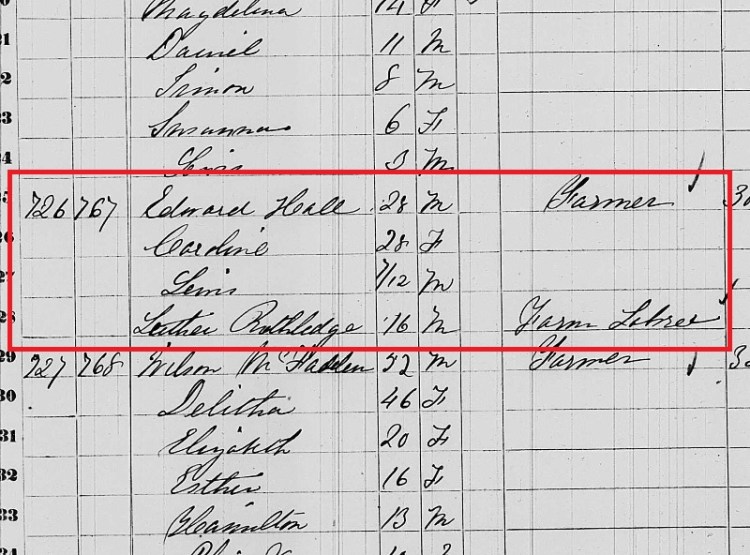 Magdelina 14 F
21 Daniel 11 M
22 Simon 8 M
23 Susanna 6 F
24 Lewis 3 M
25 726 767 Edward Hall 28 M Farmer
26 Caroline 28 F
27 Lewis 7/12 M
28 Luther Ruthledge 16 M Farm Labrer
29 727 768 Wilson McFadden 52 M Farmer
30 Delitha 46 F
31 Elizabeth 20 F
32 Esther 16 F
33 Hamilton 13 M